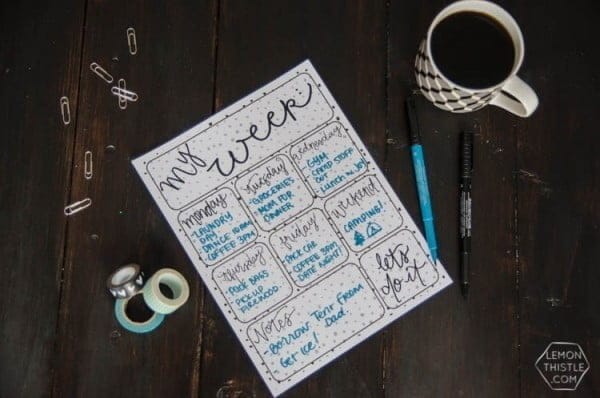 my week:
monday
- LAUNDRY
DAY
DANCE 10AM
COFFEE 3PM
tuesday
- GROCERIES
- MOM FOR
DINNER
wednesday
- GYM
- CAMP STOVE
OUT
- Lunch w. Jo!
thursday
- PACK BAGS
- PICK UP
FIREWOOD
friday
- PACK CAR
COFFEE 3PM
DATE NIGHT!
weekend
CAMPING!
Notes
- Borrow Tent From
Dad.
- Get Ice!
let's
do it!
LEMON
THISTLE
.COM